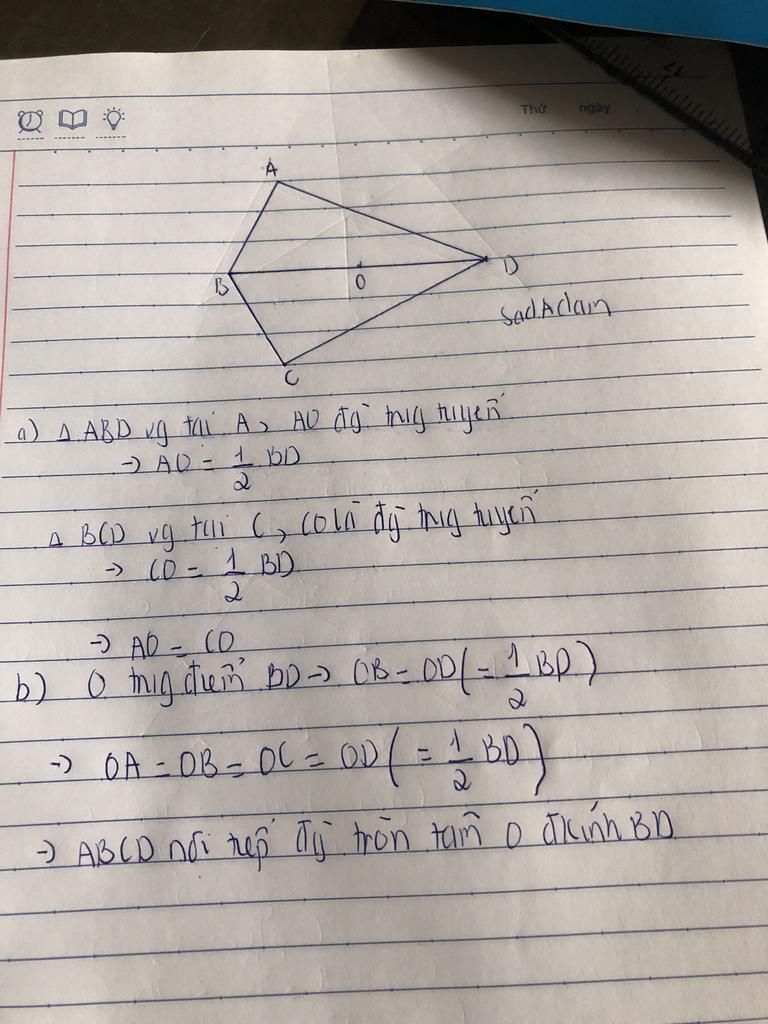 Thứ ngày
A
B
O
D
C
SadAdam
a) Δ ABD vg tại A, AO đg trug tuyến
→ AO = 1/2 BD
Δ BCD vg tại C, CO là đg trug tuyến
→ CO = 1/2 BD
→ AO = CO
b) O trug điểm BD → OB = OD (= 1/2 BD)
→ OA = OB = OC = OD (= 1/2 BD)
→ ABCD nội tiếp đg tròn tâm O đkính BD